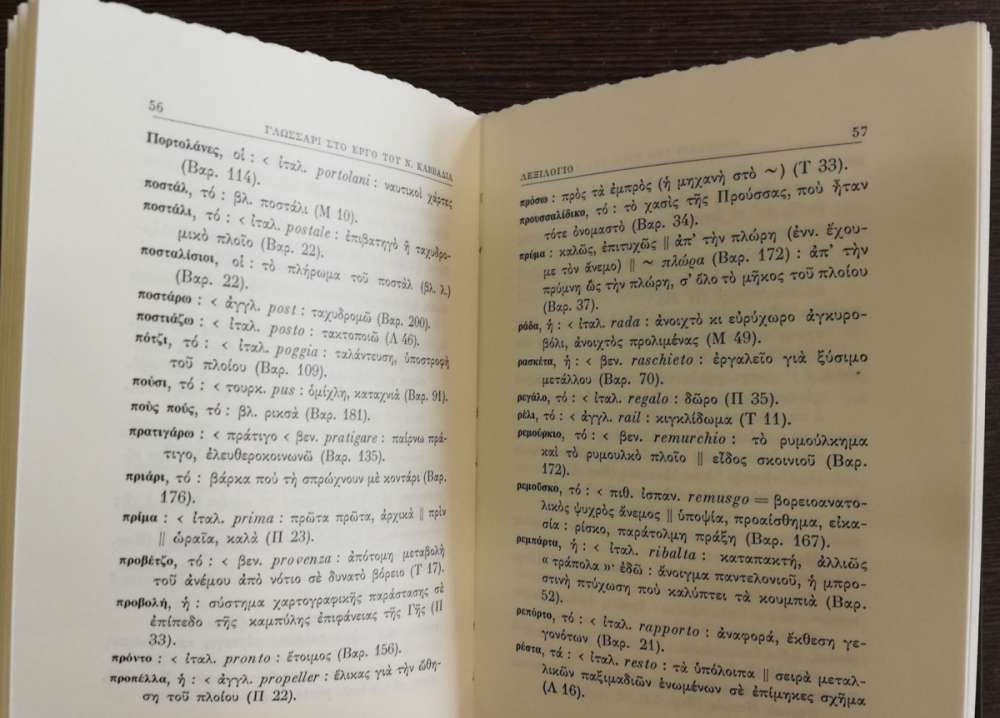 56
ΓΛΩΣΣΑΡΙ ΣΤΟ ΕΡΓΟ ΤΟΥ Ν. ΚΑΒΒΑΔΙΑ
Πορτολάνες, οἱ : < ἰταλ. portolani : ναυτικοὶ χάρτες
(Βαρ. 114).
ποστάλ, τό : βλ. ποστάλι (Μ 10).
ποστάλι, τό : < ἰταλ. postale : ἐπιβατηγὸ ἢ ταχυδρο-
μικὸ πλοῖο (Βαρ. 22).
ποσταλίσιοι, οἱ : τὸ πλήρωμα τοῦ ποστάλ (βλ. λ.)
(Βαρ. 22).
ποστάρω : < ἀγγλ. post : ταχυδρομῶ (Βαρ. 200).
ποστιάζω : < ἰταλ. posto : τακτοποιῶ (Λ 46).
πότζι, τό : < ἰταλ. poggia : ταλάντευση, ὑποστροφὴ
τοῦ πλοίου (Βαρ. 109).
πούσι, τό : < τουρκ. pus : ὁμίχλη, καταχνιά (Βαρ. 91).
ποὺς ποὺς, τό : βλ. ρικσά (Βαρ. 181).
πρατιγάρω : < πράτιγο < βεν. pratigare : παίρνω πρά-
τιγο, ἐλευθεροκοινωνῶ (Βαρ. 135).
πριάρι, τό : βάρκα ποὺ τὴ σπρώχνουν μὲ κοντάρι (Βαρ.
176).
πρίμα : < ἰταλ. prima : πρῶτα πρῶτα, ἀρχικὰ || πρὶν
|| ὡραῖα, καλά (Π 23).
προβέτζο, τό : < βεν. provenza : ἀπότομη μεταβολὴ
τοῦ ἀνέμου ἀπὸ νότιο σὲ δυνατὸ βόρειο (Τ 17).
προβολή, ἡ : σύστημα χαρτογραφικῆς παράστασης σὲ
ἐπίπεδο τῆς καμπύλης ἐπιφάνειας τῆς Γῆς (Π
33).
πρόντο : < ἰταλ. pronto : ἕτοιμος (Βαρ. 156).
προπέλλα, ἡ : < ἀγγλ. propeller : ἕλικας γιὰ τὴν ὤθη-
ση τοῦ πλοίου (Π 22).
57
ΛΕΞΙΛΟΓΙΟ
πρόσω : πρὸς τὰ ἐμπρὸς (ἡ μηχανὴ στὸ ~) (Τ 33).
προυσσαλίδικο, τό : τὸ χασὶς τῆς Προύσσας, ποὺ ἦταν
τότε ὀνομαστὸ (Βαρ. 34).
πρίμα : καλῶς, ἐπιτυχῶς || ἀπ' τὴν πλώρη (ἐνν. ἔχου-
με τὸν ἄνεμο) || ~ πλώρα (Βαρ. 172) : ἀπ' τὴν
πρύμνη ὣς τὴν πλώρη, σ' ὅλο τὸ μῆκος τοῦ πλοίου
(Βαρ. 37).
ράδα, ἡ : < ἰταλ. rada : ἀνοιχτὸ κι εὐρύχωρο ἀγκυρο-
βόλι, ἀνοιχτὸς προλιμένας (Μ 49).
ρασκέτα, ἡ : < βεν. raschieto : ἐργαλεῖο γιὰ ξύσιμο
μετάλλου (Βαρ. 70).
ρεγάλο, τό : < ἰταλ. regalo : δῶρο (Π 35).
ρέλι, τό : < ἀγγλ. rail : κιγκλίδωμα (Τ 11).
ρεμούρκιο, τό : < βεν. remurchio : τὸ ρυμούλκημα
καὶ τὸ ρυμουλκὸ πλοῖο || εἶδος σκοινιοῦ (Βαρ.
172).
ρεμοῦσκο, τό : < πιθ. ἱσπαν. remusgo = βορειοανατο-
λικὸς ψυχρὸς ἄνεμος || ὑποψία, προαίσθημα, εἰκα-
σία : ρίσκο, παράτολμη πράξη (Βαρ. 167).
ρεμπάρτα, ἡ : < ἰταλ. ribalta : καταπακτή, ἀλλιῶς
« τράπολα »· ἐδῶ : ἄνοιγμα παντελονιοῦ, ἡ μπρο-
στινὴ πτύχωση ποὺ καλύπτει τὰ κουμπιὰ (Βαρ.
52).
ρεπόρτο, τό : < ἰταλ. rapporto : ἀναφορά, ἔκθεση γε-
γονότων (Βαρ. 21).
ρέστα, τά : < ἰταλ. resto : τὰ ὑπόλοιπα || σειρὰ μεταλ-
λικῶν παξιμαδιῶν ἑνωμένων σὲ ἐπίμηκες σχῆμα
(Λ 16).